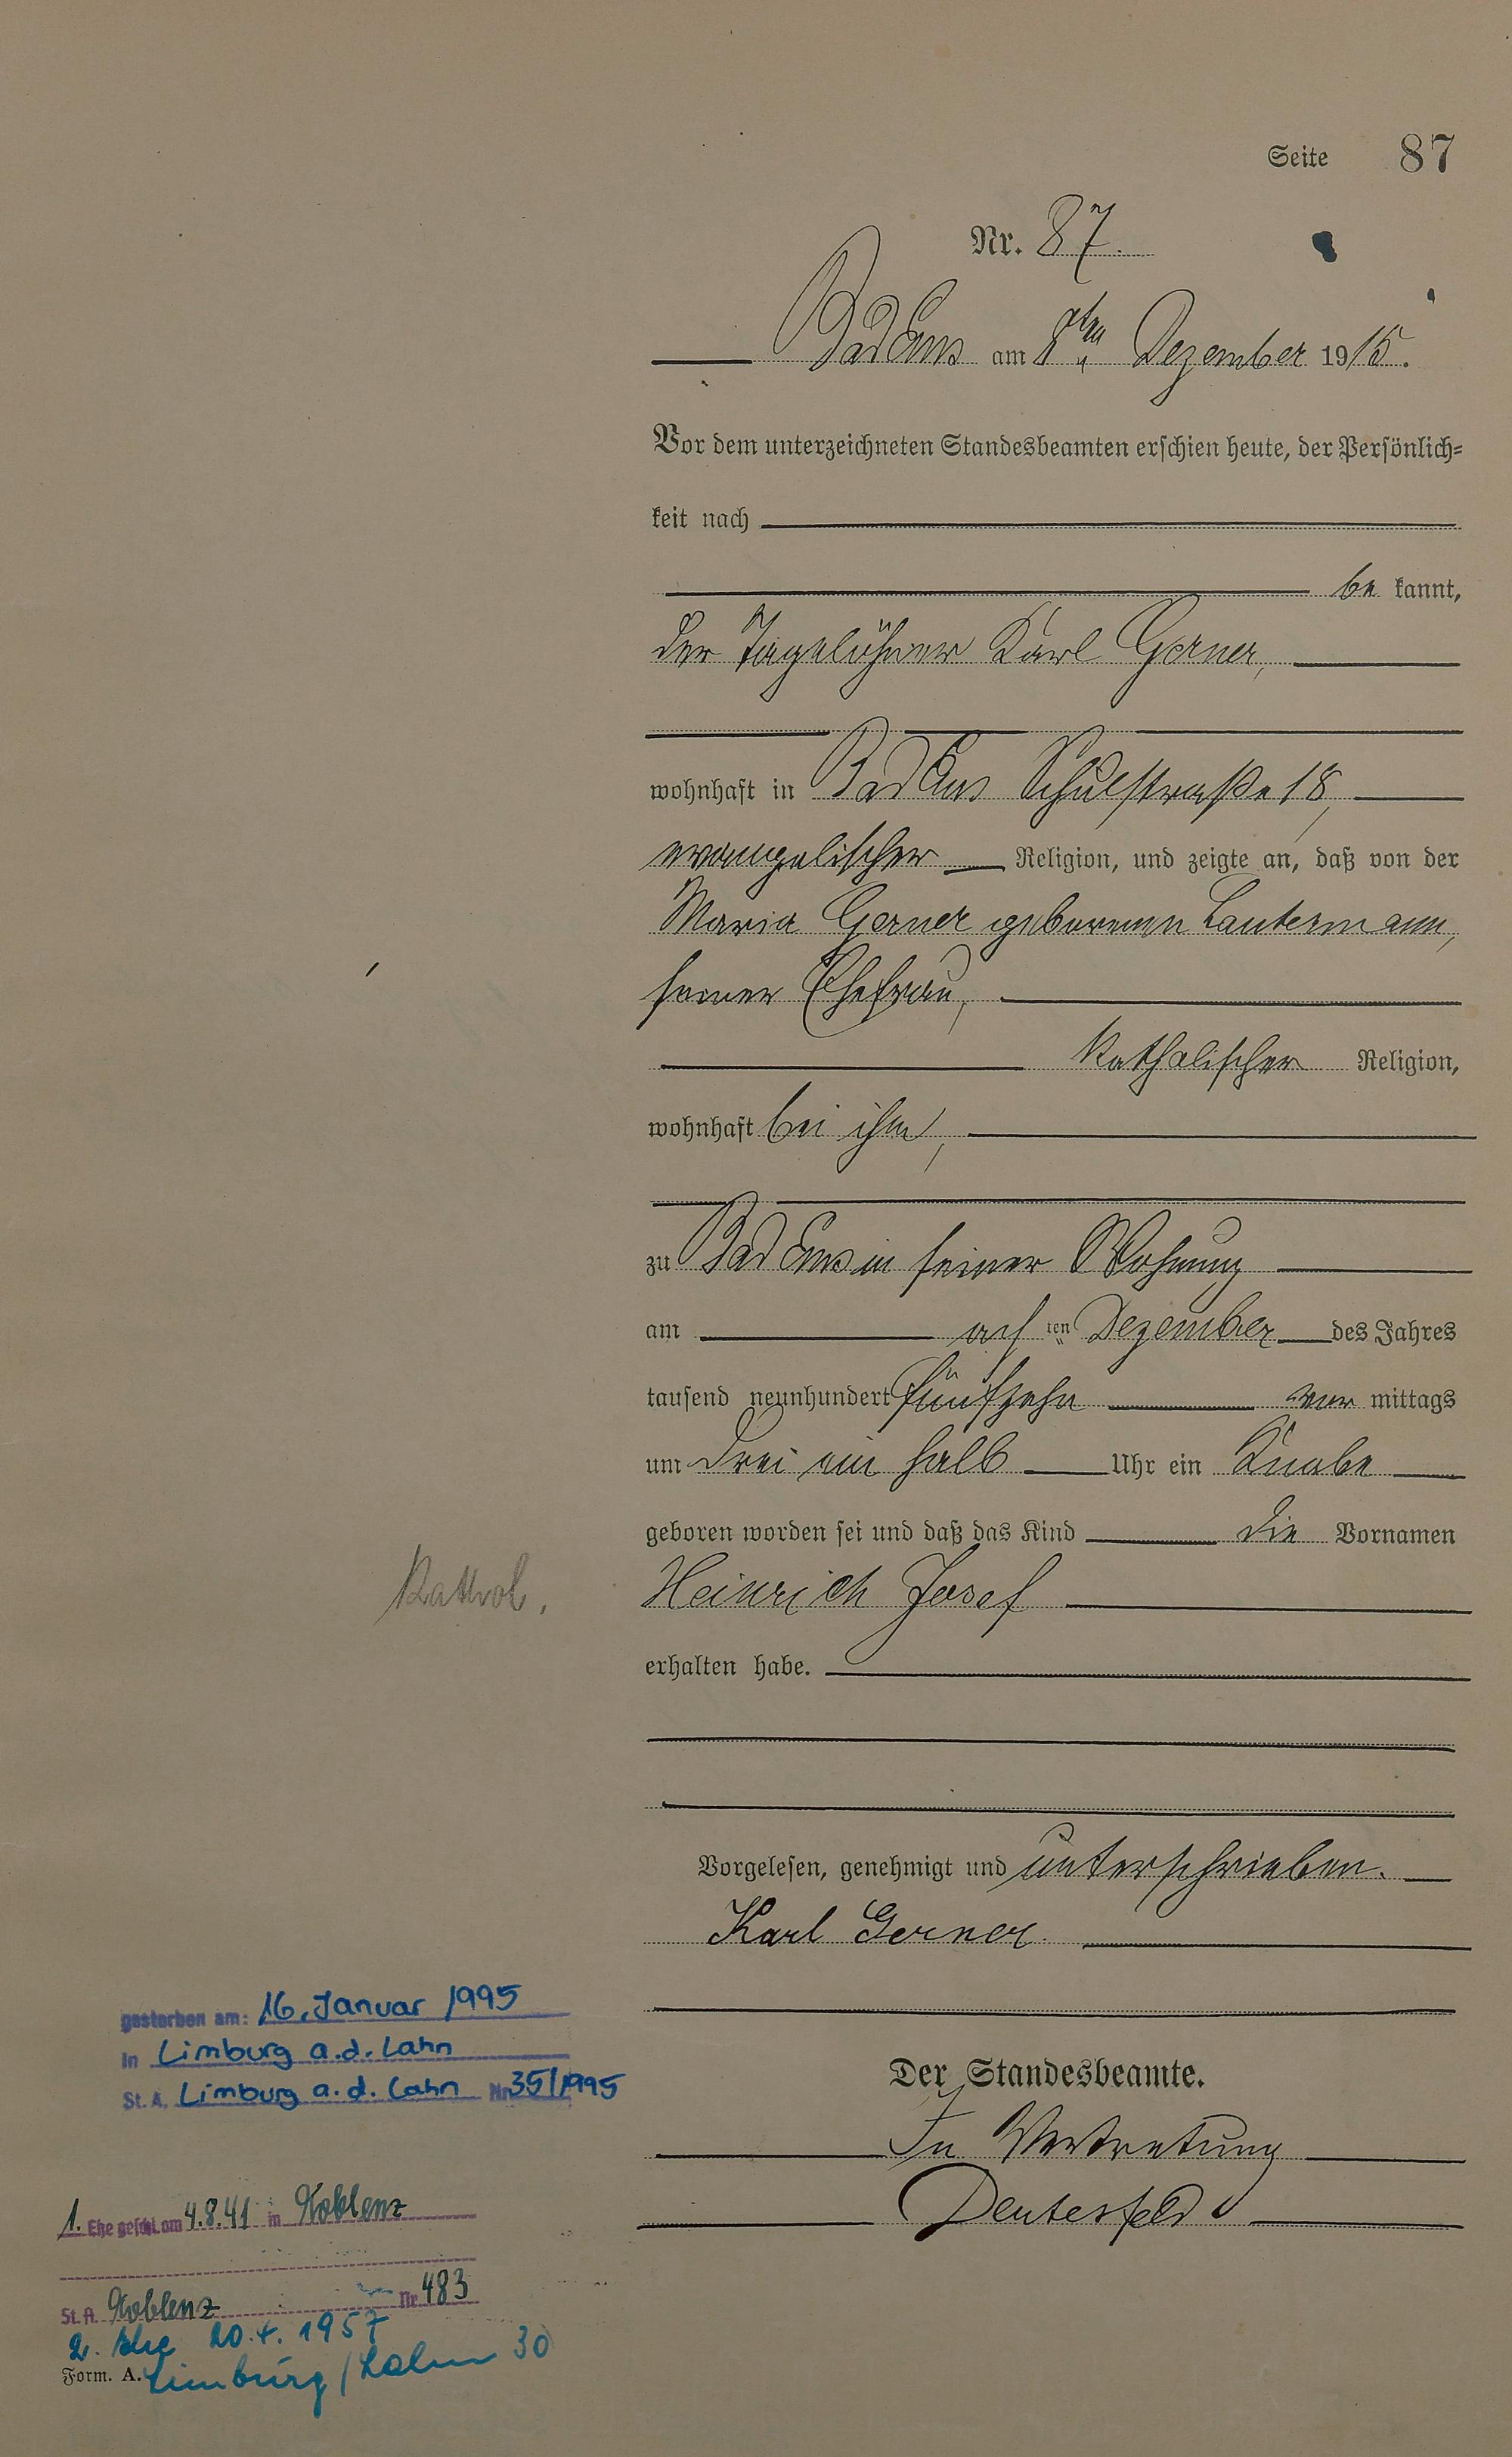 Seite 87
Nr. 87.
Bad Ems am 8ten Dezember 1915.
Vor dem unterzeichneten Standesbeamten erschien heute, der Persönlich=
keit nach
be kannt,
der Tagelöhner Karl Gerner,
wohnhaft in Bad Ems Schulstraße 18,
evangelischer Religion, und zeigte an, daß von der
Maria Gerner geborenen Lautermann,
seiner Ehefrau,
katholischer Religion,
wohnhaft bei ihm,
zu Bad Ems in seiner Wohnung
am ach ten Dezember des Jahres
tausend neunhundert fünfzehn vor mittags
um drei ein halb Uhr ein Knabe
geboren worden sei und daß das Kind die Vornamen
Kathol. Heinrich Josef
erhalten habe.
Vorgelesen, genehmigt und unterschrieben.
Karl Gerner
Der Standesbeamte.
In Vertretung
gestorben am: 16. Januar 1995
in Limburg a.d. Lahn
St. A. Limburg a. d. Lahn Nr 35/1995
1. Ehe geschl. am 4.8.41 in Koblenz
St. A. Koblenz Nr 483
2. Ehe 20.4. 1957
Form. A. Limburg / Lahn 30